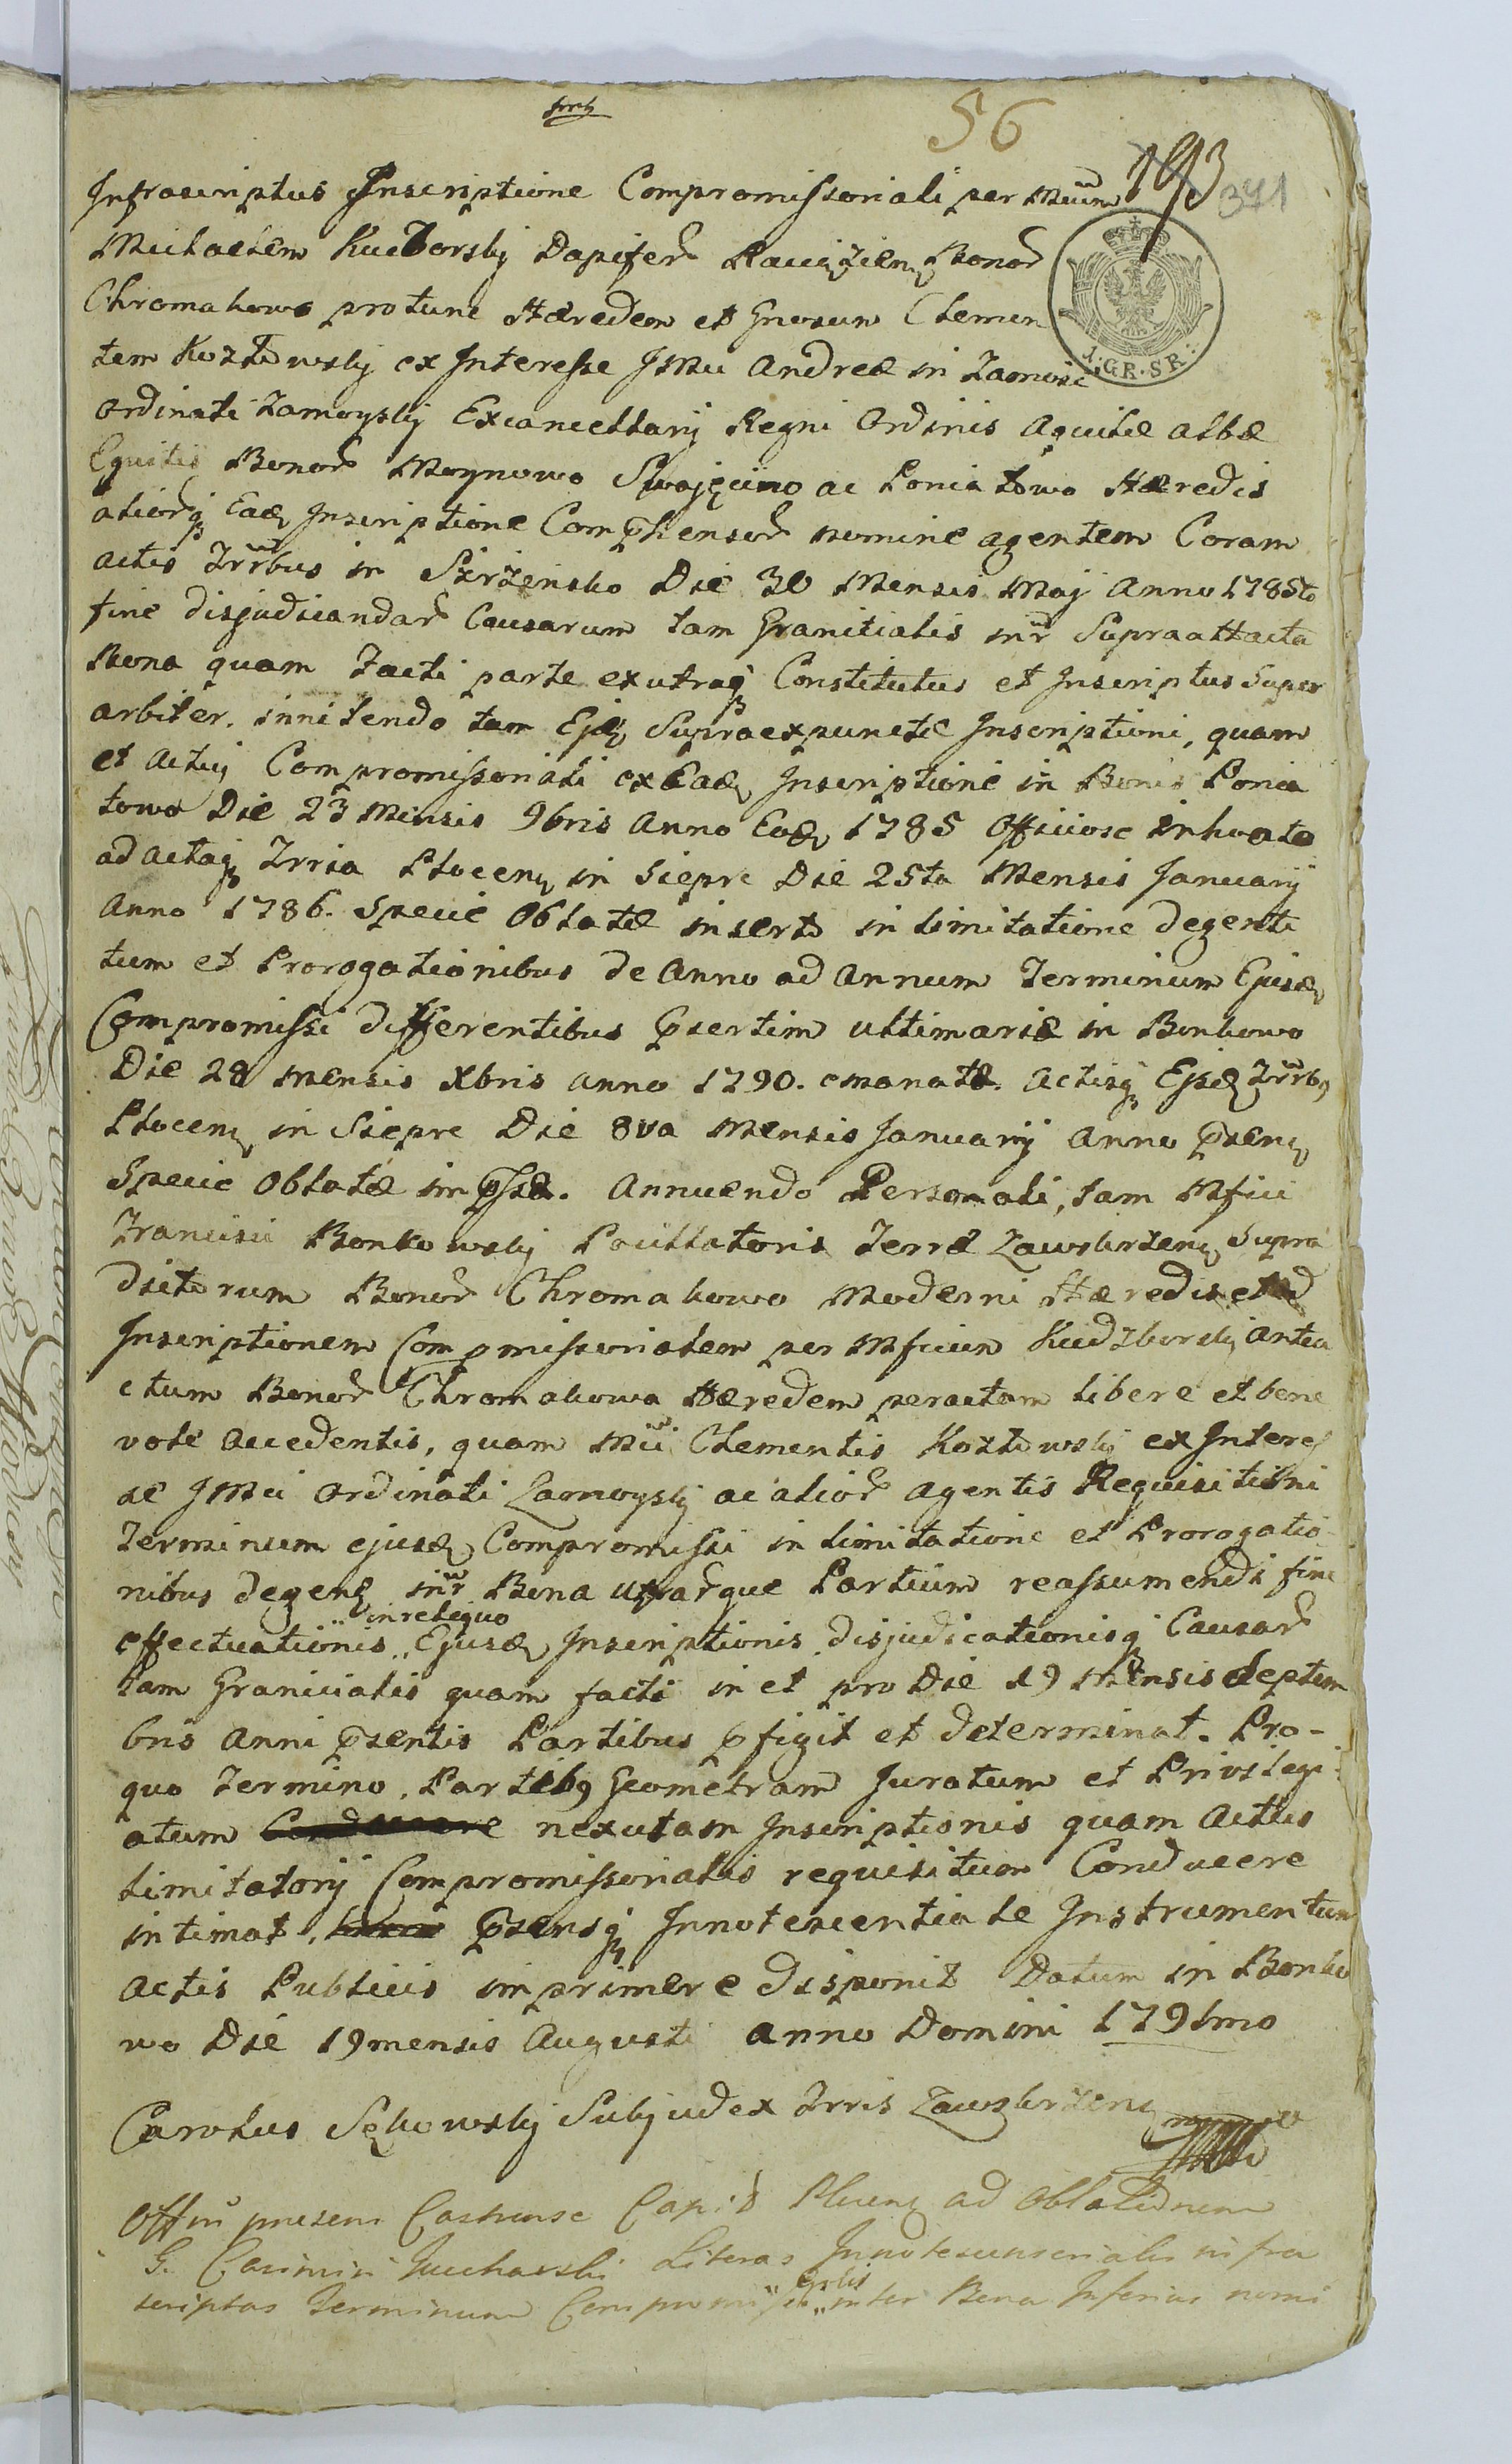 56
193
371
Infrascriptus Inscriptione Compromissoriali per Mcum
Michaelem Kuczborsky Dapifer Raciązien Bonor
Chromakowo protunc Hæredem et Gnosum Clemen
tem Kozłowsky ex Interesse JMci Andreæ in Zamość
1:GR·SR:
Ordinati Zamoysky Excancellarij Regni Ordinis Aquilæ albæ
Equitis Bonor Moynowo Swojęcino ac Poniatowo Hæredis
aliorq Eadq Inscriptione Comphensor nomine agentem Coram
actis Trrbus in Szrzensko Die 30 Mensis Maj Anno 1785to
fine disjudicandar Causarum tam Granitialis intr Supraattacta
Bona quam Facti parte exutraq Constitutus et Inscriptus Super
arbiter. innitendo tam Ejq Supraexpunctæ Inscriptioni, quam
et Actuj Compromissoriali ex Eadq Inscriptione in Bonis Ponia
towo Die 23 Mensis 9bris Anno Eoq 1785 Officiose inhoato
ad actaq Trria Plocenq in Siepre Die 25ta Mensis Januarij
Anno 1786. Specie Oblatæ inserto in limitatione degenti
tum et Prorogationibus de Anno ad Annum Terminum Ejusdq
Compromissi differentibus psertim ultimariæ in Bonkowo
Die 28 mensis Xbris anno 1790. emanatæ. actisq Ejsdq Trrb9
Plocenq in Siepre Die 8va Mensis Januarij Anno psenq
Specie Oblatæ impssæ. Annuendo Personali, tam Mfici
Francisci Bonkowsky Pocillatoris Terræ Zawskrzenq Supra
dictorum Bonor Chromakowo moderni Hæredis et ad
Inscriptionem Compmissorialem per Mficum Kudzborsky antea
ctum Bonor Chromakowa Hæredem peractam libere et bene
vole accedentis, quam Mci Clementis Kozłowsky ex Interes
se JMci Ordinati Zamoysky ac alior agentis Requisitioni
Terminum ejusdq Compromissi in limitatione et Prorogatio
nibus degenq intr Bona utrarque Partium reassumendi fine
effectuationis .. in reliquo .. Ejusdq Inscriptionis disjudicationisq Causar
tam Granicialis quam facti in et pro Die 19 Mensis Septem
bris Anni psentis Partibus pfigit et determinat. Pro-
quo Termino, Partib9 Geometram Juratum et Privilegi
atum nexu tam Inscriptionis quam Actus
limitatorij Compromissorialis requisitum Conducere
intimat, psensq Innotescentiale Instrumentum
Actis Publicis imprimere disponit Datum in Bonko
wo Die 19 mensis Augusti anno Domini 1791mo
Carolus Sękowsky Subjudex Trris Zawskrzenq
Offm presens Castrense Capit Plocenq ad Oblationem
G. Casimiri Literas Innotescenseriales infra
scriptas Terminum Compromissi inter Bona Inferius nomi